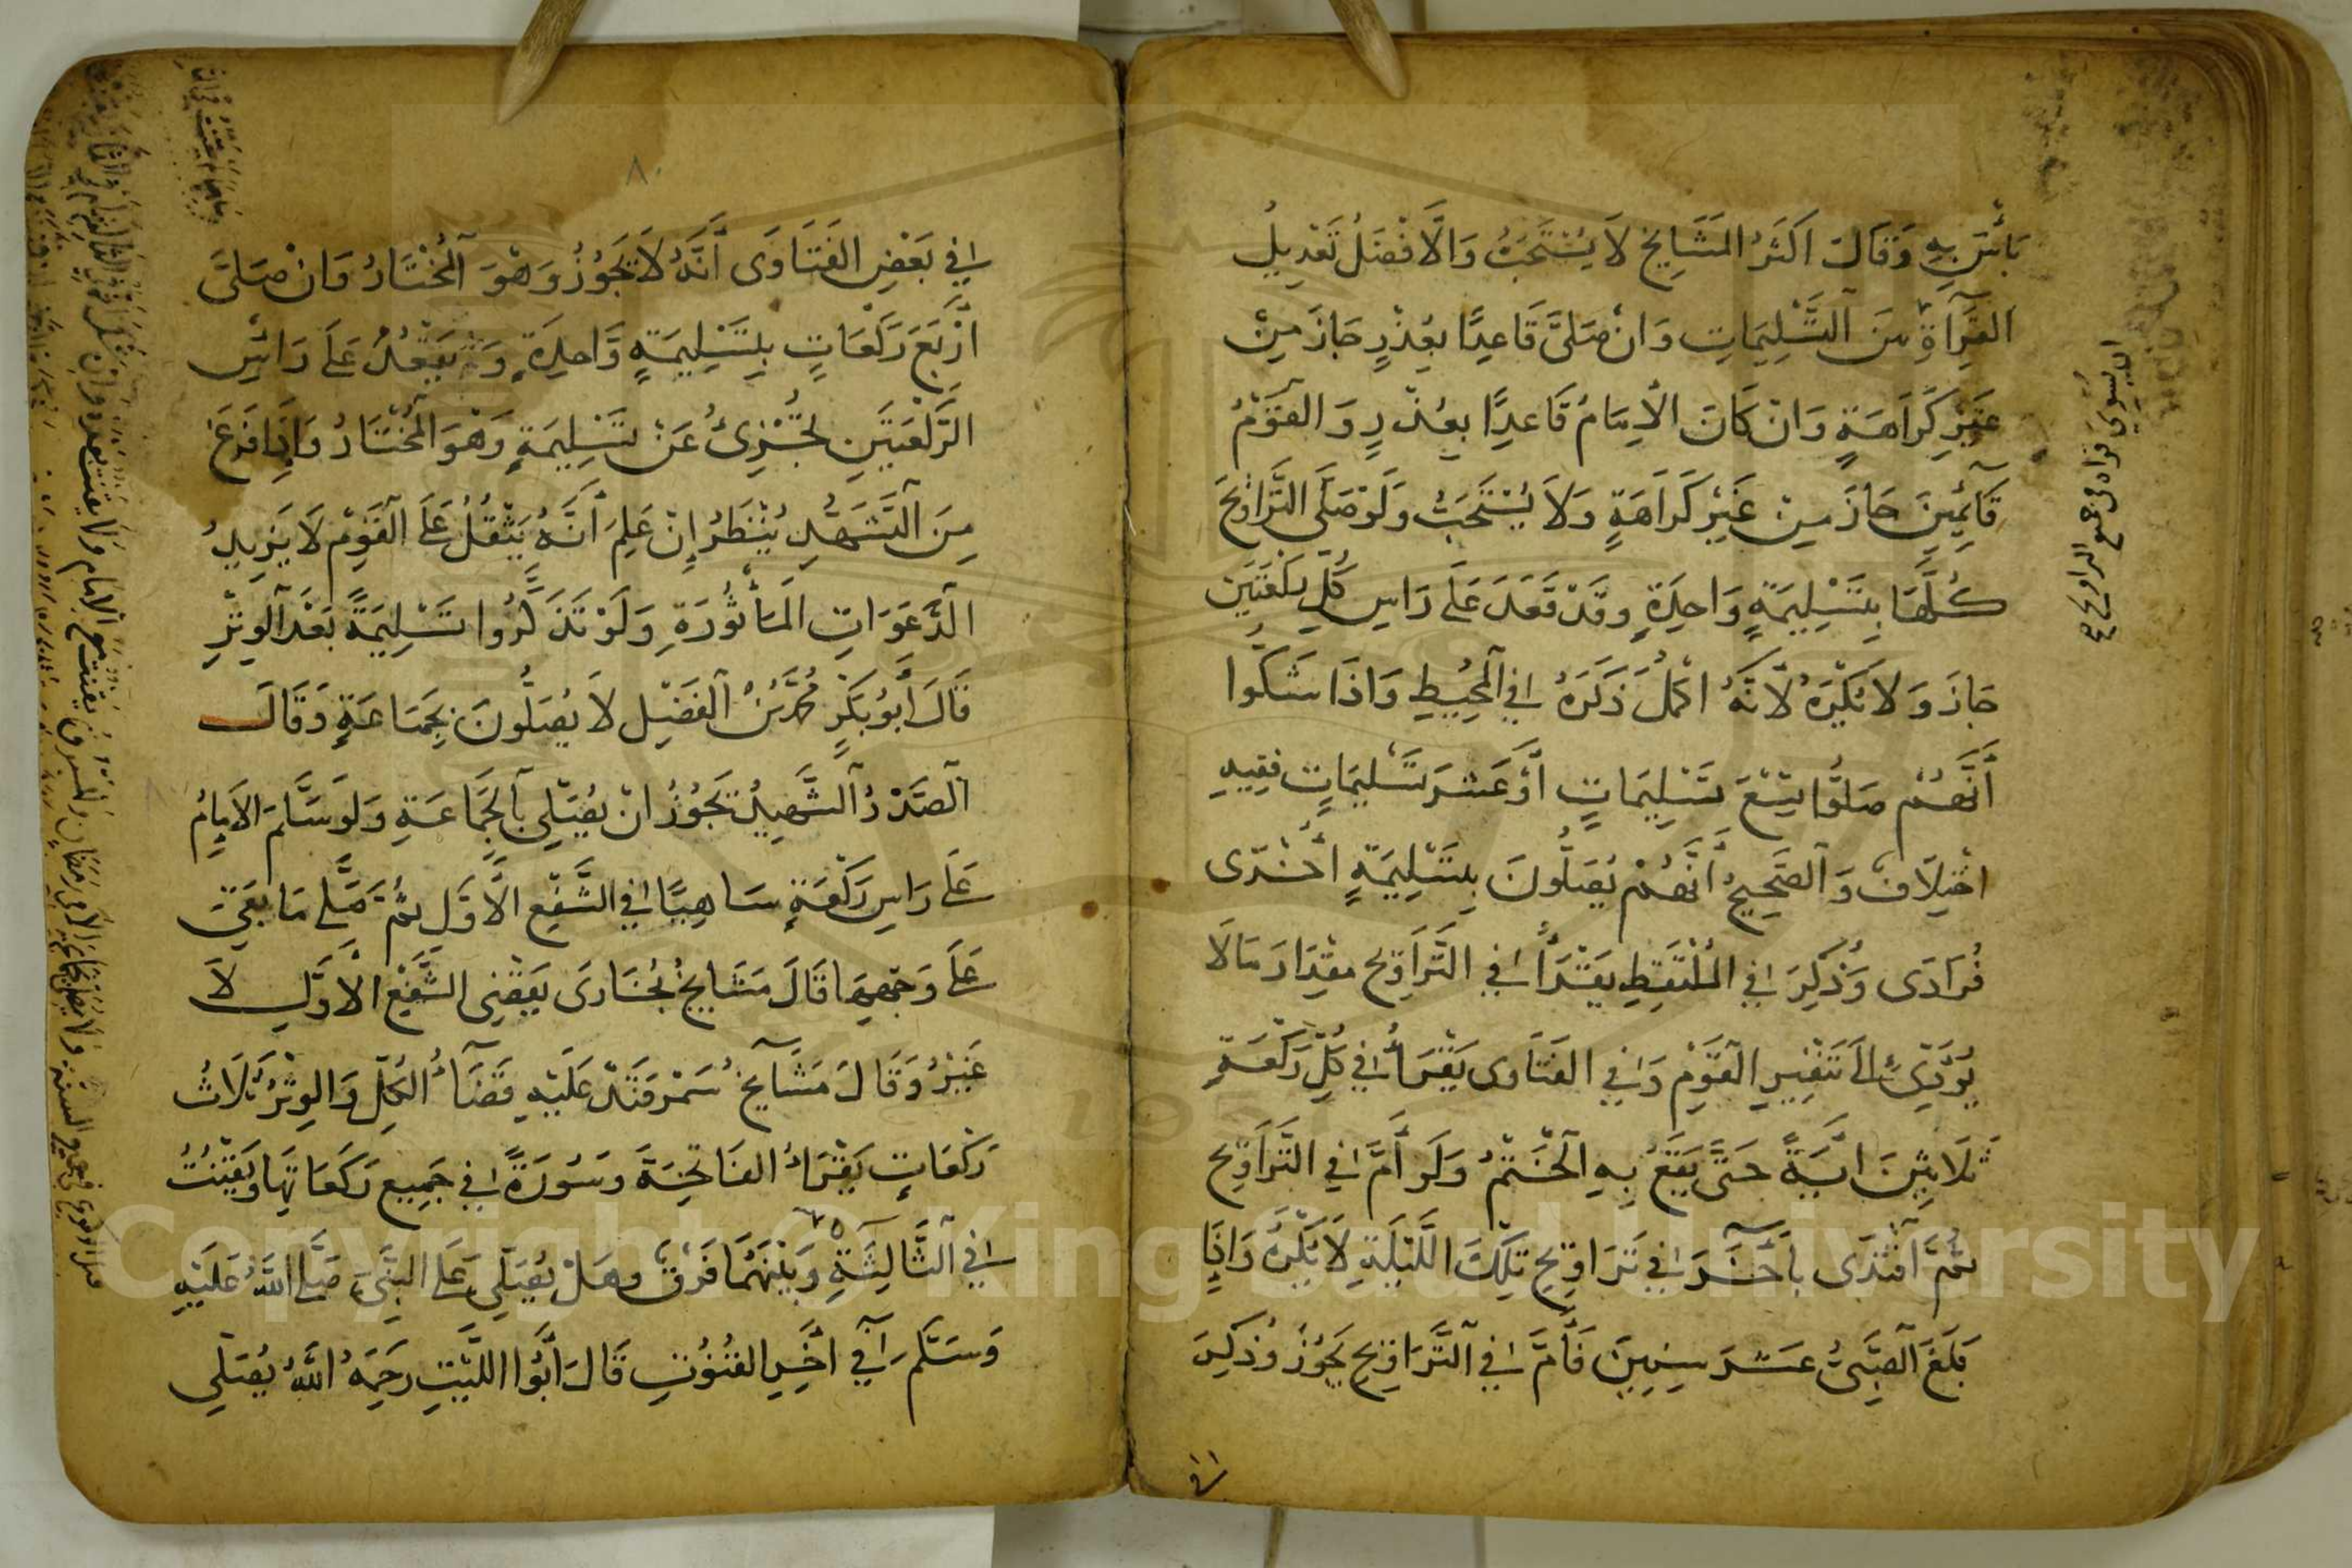 بَأْسَ بِهِ وَقَالَ اَكْثَرُ المَشَايِخِ لَا يُسْتَحَبُّ وَالاَفْضَلُ تَعْدِيلُ
القِرَآءَةِ مِنَ التَّسْلِيمَاتِ وَانْ صَلَّى قَاعِدًا بِعُذْرٍ جَازَ مِنْ
غَيْرِ كَرَاهَةٍ وَانْ كَانَ الاِمَامُ قَاعِدًا بِعُذْرٍ وَالقَوْمُ
قَآئِمِينَ جَازَ مِنْ غَيْرِ كَرَاهَةٍ وَلَا يُسْتَحَبُّ وَلَوْ صَلَّى التَّرَاوِيحَ
كُلَّهَا بِتَسْلِيمَةٍ وَاحِدَةٍ وَقَدْ قَعَدَ عَلَى رَاسِ كُلِّ رَكْعَتَيْنِ
جَازَ وَلَا يُكْرَهُ لِاَنَّهُ اَكْمَلُ ذَكَرَهُ فِي المُحِيطِ وَاذَا شَكُّوا
أَنَّهُمْ صَلَّوْا تِسْعَ تَسْلِيمَاتٍ أَوْ عَشَرَ تَسْلِيمَاتٍ فَفِيهِ
اخْتِلَافٌ وَالصَّحِيحُ أَنَّهُمْ يُصَلُّونَ بِتَسْلِيمَةٍ أُخْرَى
فُرَادَى وَذُكِرَ فِي المُلْتَقَطِ يَقْرَأُ فِي التَّرَاوِيحِ مِقْدَارَ مَا لَا
يُؤَدِّى الَى تَنْفِيرِ القَوْمِ وَفِي الفَتَاوَى يَقْرَأُ فِي كُلِّ رَكْعَةٍ
ثَلَاثِينَ ايَةً حَتَّى يَقَعَ بِهِ الخَتْمُ وَلَو أَمَّ فِي التَّرَاوِيحِ
ثُمَّ اقْتَدَى بِآخَرَ فِي تَرَاوِيحِ تِلْكَ اللَّيْلَةِ لَا يُكْرَهُ وَاذَا
بَلَغَ الصَّبِىُّ عَشَرَ سِنِينَ فَأَمَّ فِي التَّرَاوِيحِ يَجُوزُ وَذُكِرَ
في
ان يسوي قراءة في جميع التراويح صح
٨٠
فِي بَعْضِ الفَتَاوَى أَنَّهُ لَا يَجُوزُ وَهْوَ المُخْتَارُ وَانْ صَلَّى
أَرْبَعَ رَكْعَاتٍ بِتَسْلِيمَةٍ وَاحِدَةٍ وَلَمْ يَقْعُدْ عَلَى رَاسِ
الرَّكْعَتَيْنِ يُجْزِئُ عَنْ تَسْلِيمَةٍ وَهْوَ المُخْتَارُ وَاذَا فَرَغَ
مِنَ التَّشَهُّدِ يُنْظَرُ إِنْ عَلِمَ أَنَّهُ يَثْقُلُ عَلَى القَوْمِ لَا يَزِيدُ
الدَّعَوَاتِ المَأْثُورَةِ وَلَوْ تَذَكَّرُوا تَسْلِيمَةً بَعْدَ الوِتْرِ
قَالَ أَبُو بَكْرٍ مُحَمَّدُ بْنُ الفَضْلِ لَا يُصَلُّونَ بِجَمَاعَةٍ وَقَالَ
الصَّدْرُ الشَّهِيدُ يَجُوزُ انْ يُصَلِّي بِالجَمَاعَةِ وَلَو سَلَّمَ الاِمَامُ
عَلَى رَاسِ رَكْعَةٍ سَاهِيًا فِي الشَّفْعِ الاَوَّلِ ثُمَّ صَلَّى مَا بَقِىَ
عَلَى وَجْهِهَا قَالَ مَشَايِخُ بُخَارَى يَقْضِى الشَّفْعَ الاَوَّلَ لَا
غَيْرُ وَقَالَ مَشَايِخُ سَمَرْقَنْدَ عَلَيْهِ قَضَآءُ الكُلِّ وَالوِتْرُ ثَلَاثُ
رَكْعَاتٍ يَقْرَاُ الفَاتِحَةَ وَسُورَةً فِي جَمِيعِ رَكَعَاتِهَا وَيَقْنُتُ
فِي الثَّالِثَةِ وَبَيْنَهُمَا فَرْقٌ وَهَلْ يُصَلِّي عَلَى النَّبِىِّ صَلَّى اللّهُ عَلَيْهِ
وَسَلَّمَ فِي اخِرِ القُنُوتِ قَالَ أَبُوا اللَّيْثِ رَحِمَهُ اللّهُ يُصَلِّي
Copyright © King Saud University